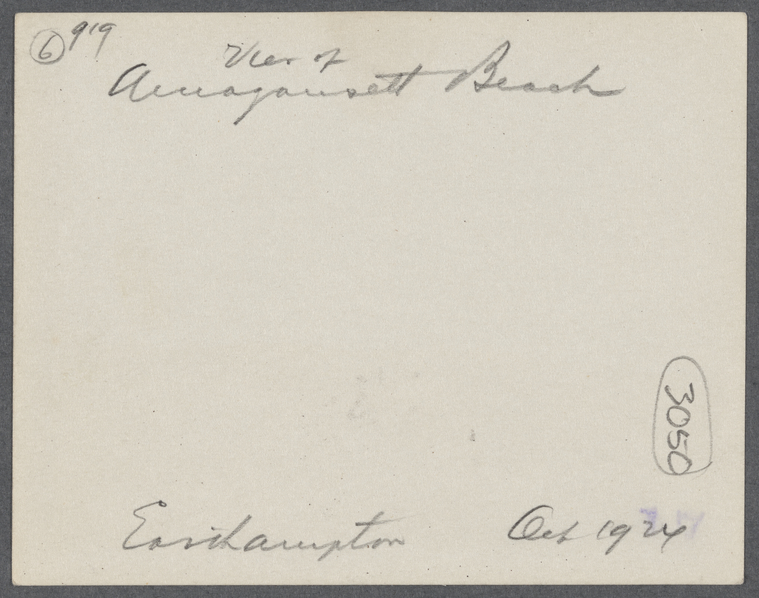 6 9'9
View of
Amagansett Beach
3050
Easthampton Oct 1924